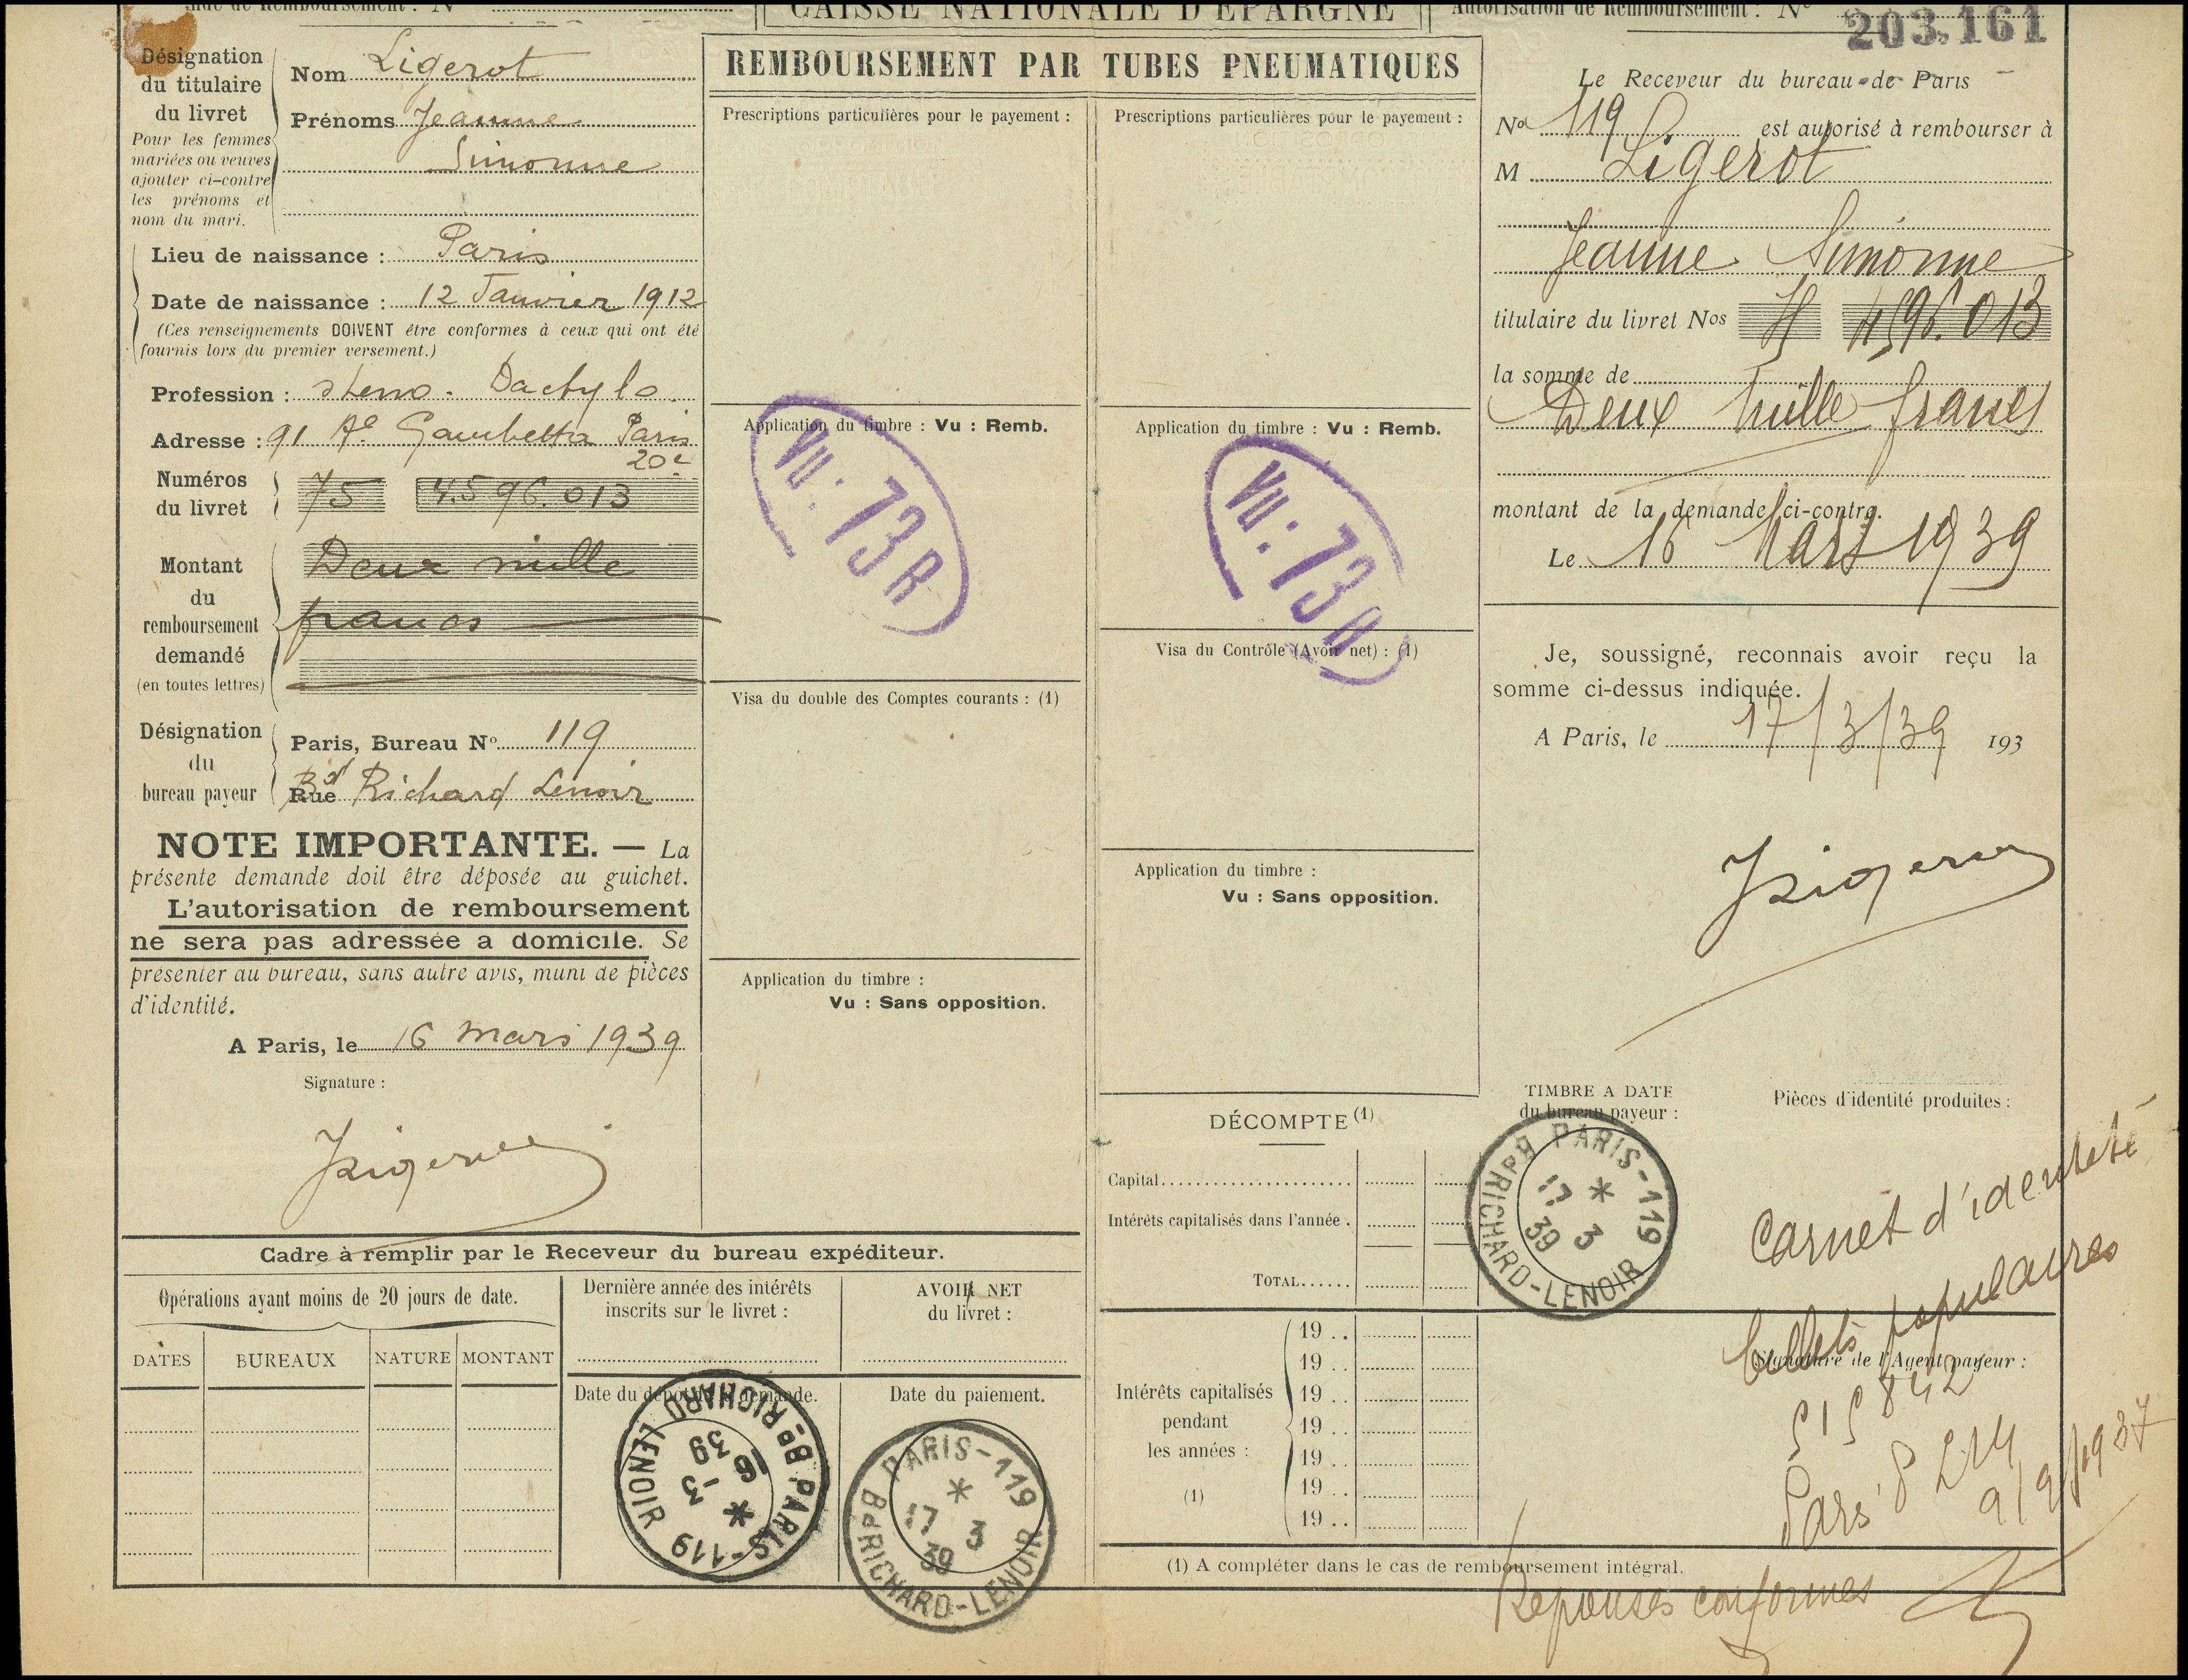 CAISSE NATIONALE D'ÉPARGNE
Autorisation de Remboursement : No
203,161
Désignation
du titulaire
du livret
Pour les femmes
mariées ou veuves
ajouter ci-contre
les prénoms et
nom du mari.
Nom Ligerot
Prénoms Jeanne
Simonne
Lieu de naissance : Paris
Date de naissance : 12 Janvier 1912
(Ces renseignements DOIVENT être conformes à ceux qui ont été
fournis lors du premier versement.)
Profession : steno. Dactylo.
Adresse : 91 Ae Gambetta Paris
20e
Numéros
du livret
75 4.596.013
Montant
du
remboursement
demandé
(en toutes lettres)
Deux mille
francs
Désignation
du
bureau payeur
Paris, Bureau No 119
Rue Bd Richard Lenoir
NOTE IMPORTANTE. — La
présente demande doit être déposée au guichet.
L'autorisation de remboursement
ne sera pas adressée a domicile. Se
présenter au bureau, sans autre avis, muni de pièces
d'identité.
A Paris, le 16 mars 1939
Signature :
REMBOURSEMENT PAR TUBES PNEUMATIQUES
Prescriptions particulières pour le payement :
Application du timbre : Vu : Remb.
VU : 73 R
Visa du double des Comptes courants : (1)
Application du timbre :
Vu : Sans opposition.
Prescriptions particulières pour le payement :
Application du timbre : Vu : Remb.
VU : 73 R
Visa du Contrôle (Avoir net) : (1)
Application du timbre :
Vu : Sans opposition.
DÉCOMPTE (1)
Capital
Intérêts capitalisés dans l'année .
TOTAL
Le Receveur du bureau de Paris
No 119 est autorisé à rembourser à
M Ligerot
Jeanne Simonne
titulaire du livret Nos 75 4596.013
la somme de
Deux mille francs
montant de la demande ci-contre.
Le 16 Mars 1939
Je, soussigné, reconnais avoir reçu la
somme ci-dessus indiquée.
A Paris, le 17/3/39 193
TIMBRE A DATE
du bureau payeur :
PARIS-119
Bd RICHARD-LENOIR
17 3
39
Pièces d'identité produites :
Carnet d'identité
billets populaires
Signature de l'Agent payeur :
515842
Paris
9/9/1937
Cadre à remplir par le Receveur du bureau expéditeur.
Opérations ayant moins de 20 jours de date.
DATES BUREAUX NATURE MONTANT
Dernière année des intérêts
inscrits sur le livret :
AVOIR NET
du livret :
Date du dépôt de la demande.
PARIS-119
Bd RICHARD LENOIR
16 -3
39
Date du paiement.
PARIS-119
Bd RICHARD-LENOIR
17 3
39
Intérêts capitalisés
pendant
les années :
(1)
19 . .
19 . .
19 . .
19 . .
19 . .
19 . .
19 . .
(1) A compléter dans le cas de remboursement intégral.
Réponses conformes